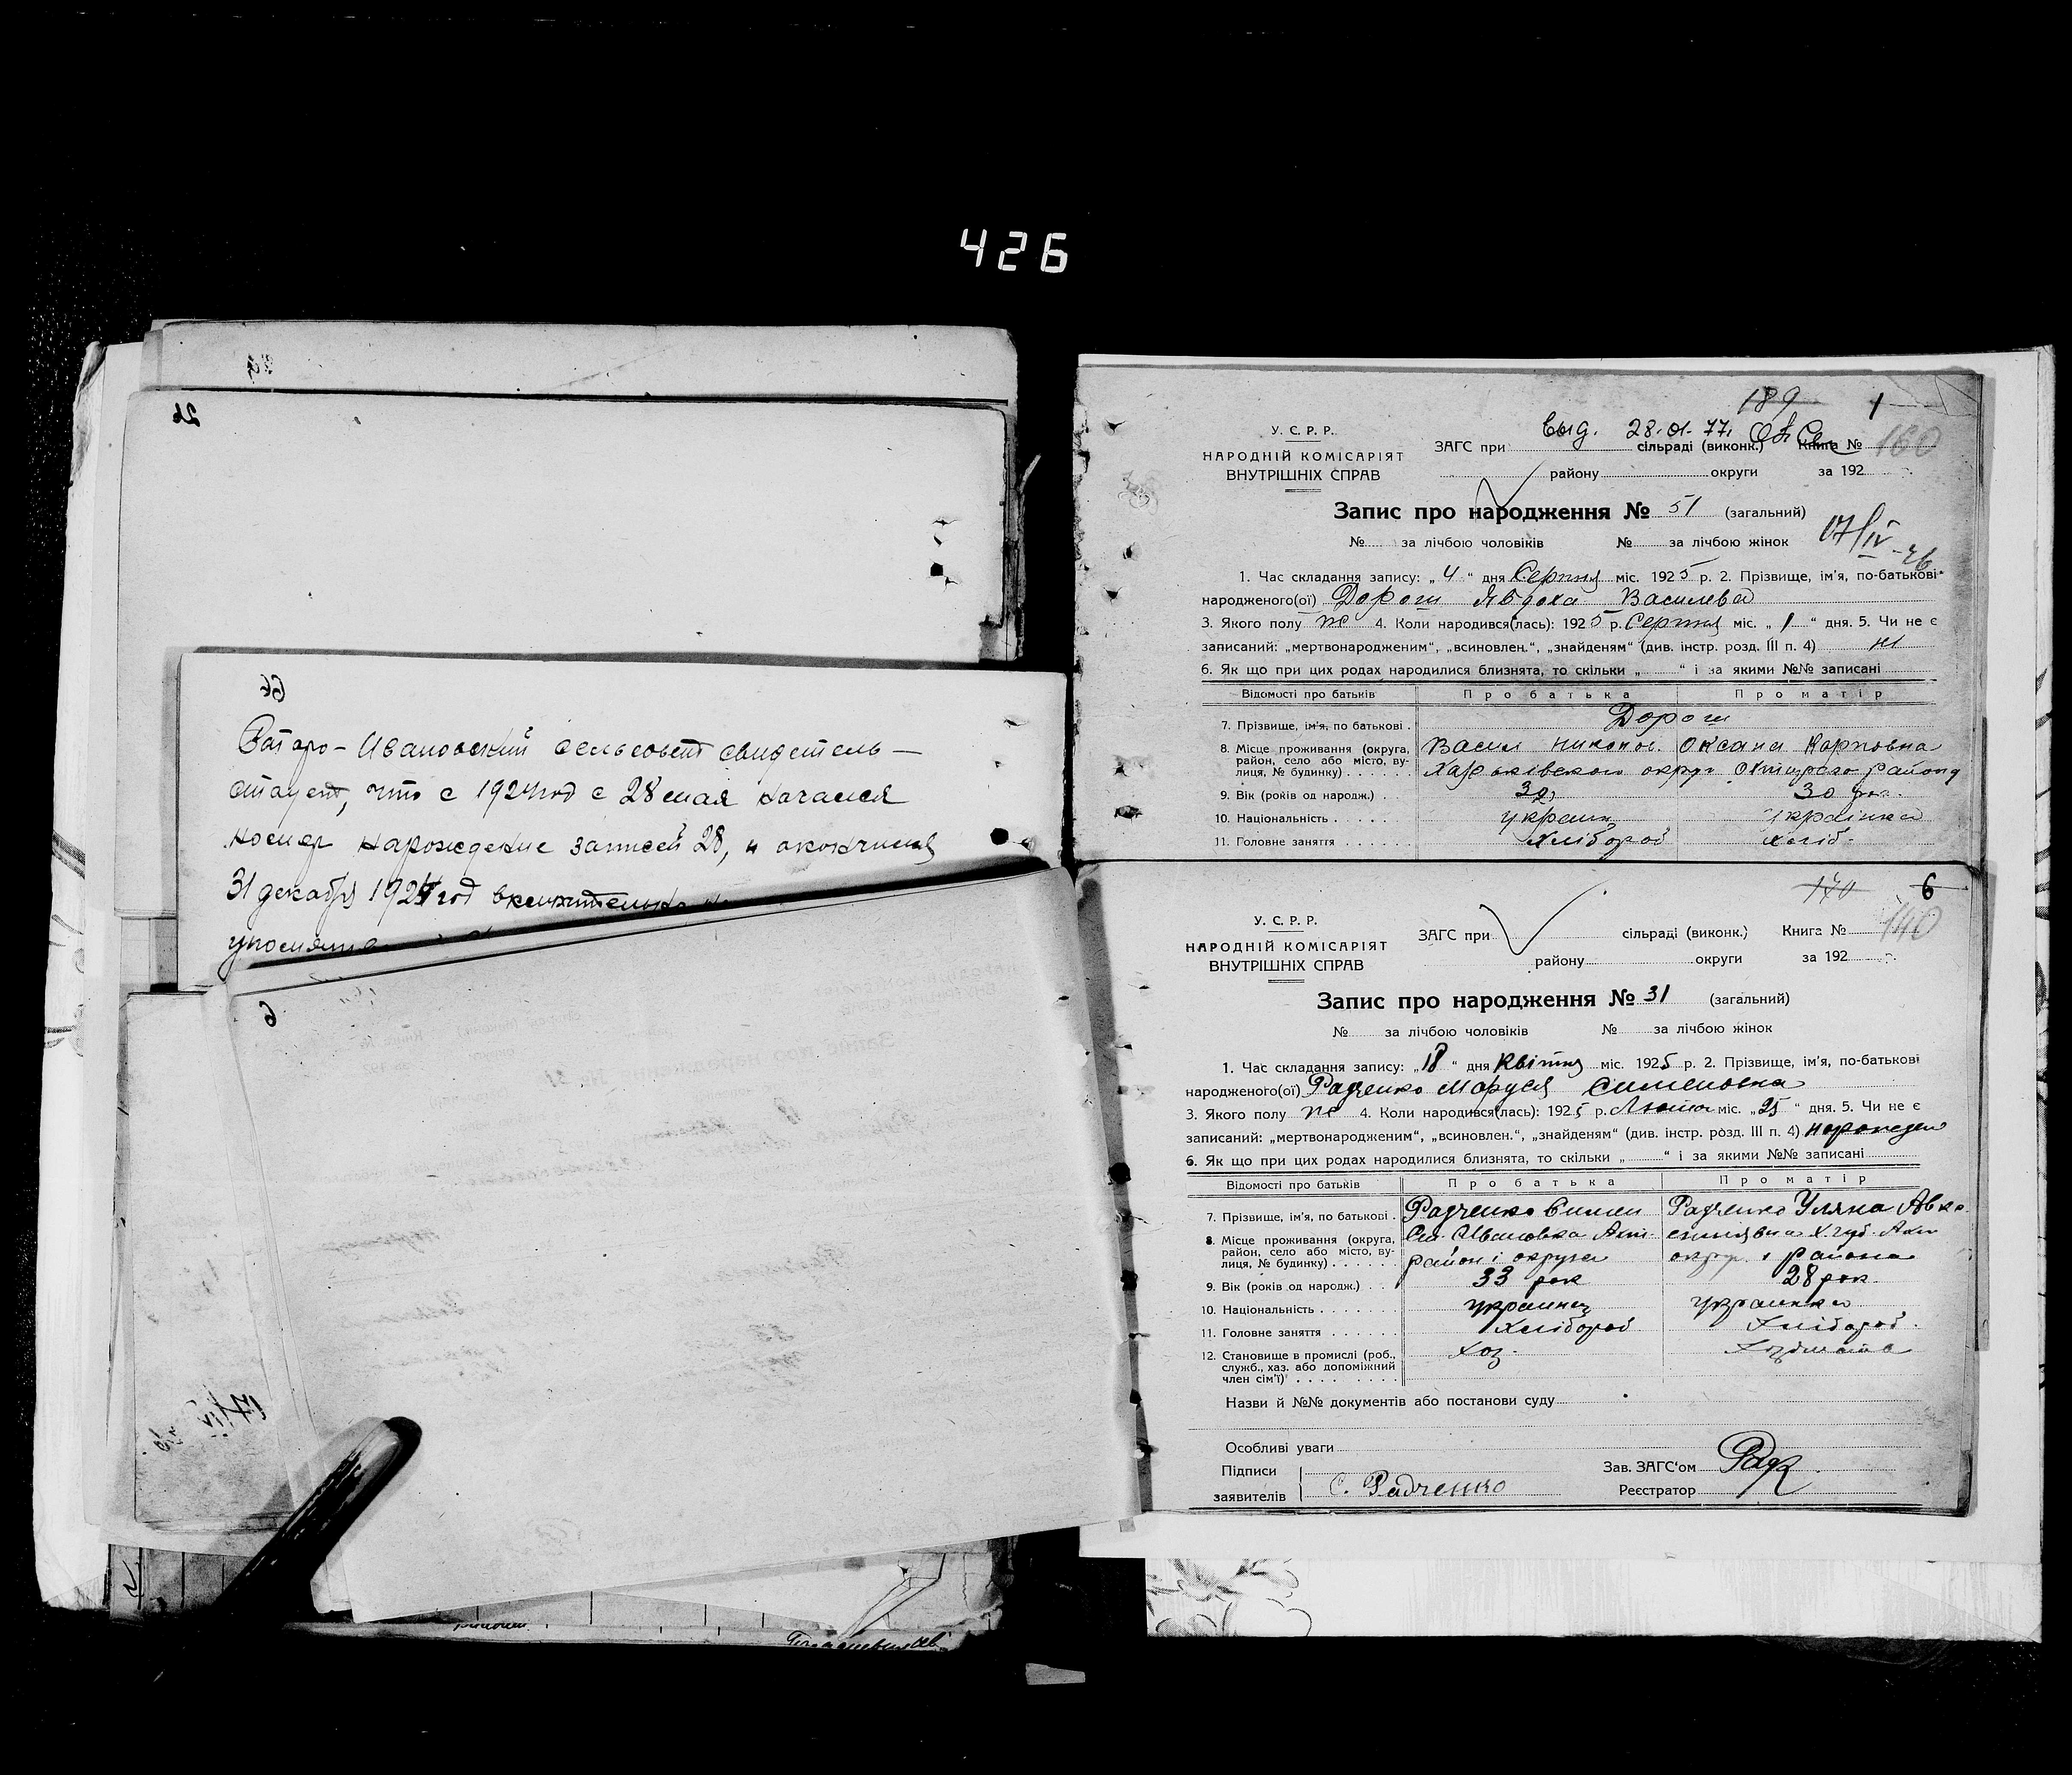 426
26
66
Ивановский сельсовет свидетель-
ствует, что с 1924 год с 28 мая начался
номер нарождение записей 28, и окончился
31 декабря 1924 год включительно
6
189 1
выд. 28.01.77.
У. С. Р. Р.
НАРОДНІЙ КОМІСАРІЯТ
ВНУТРІШНІХ СПРАВ
ЗАГС при сільраді (виконк.) Книга № 160
району округи за 192
Запис про народження № 51 (загальний)
№ за лічбою чоловіків № за лічбою жінок
17/IV-26
1. Час складання запису: „4“ дня Серпня міс. 1925 р. 2. Прізвище, ім'я, по-батькові
народженого(ої) Дорош Явдоха Василева
3. Якого полу ж 4. Коли народився(лась): 1925 р. Серпня міс. „1“ дня. 5. Чи не є
записаний: „мертвонародженим“, „всиновлен.“, „знайденям“ (див. інстр. розд. III п. 4) ні
6. Як що при цих родах народилися близнята, то скільки „ “ і за якими №№ записані
Відомості про батьків Про батька Про матір
7. Прізвище, ім'я, по батькові . Дорош
8. Місце проживання (округа, район, село або місто, вулиця, № будинку) . . . . . . Васил Никонов. Оксана Карповна
Харьківского округи району
9. Вік (років од народж.) . . 30 30 рок.
10. Національність . . . . . украин украінка
11. Головне заняття . . . . . . Хлібороб хліб.
170 6
У. С. Р. Р.
НАРОДНІЙ КОМІСАРІЯТ
ВНУТРІШНІХ СПРАВ
ЗАГС при сільраді (виконк.) Книга № 140
району округи за 192
Запис про народження № 31 (загальний)
№ за лічбою чоловіків № за лічбою жінок
1. Час складання запису: „18“ дня Квітня міс. 1925 р. 2. Прізвище, ім'я, по-батькові
народженого(ої) Радченко Маруся Сименовна
3. Якого полу ж 4. Коли народився(лась): 1925 р. Лютого міс. „25“ дня. 5. Чи не є
записаний: „мертвонародженим“, „всиновлен.“, „знайденям“ (див. інстр. розд. III п. 4)
6. Як що при цих родах народилися близнята, то скільки „ “ і за якими №№ записані
Відомості про батьків Про батька Про матір
7. Прізвище, ім'я, по батькові . Радченко Симен Радченко Уляна Авк
8. Місце проживання (округа, район, село або місто, вулиця, № будинку) . . . . . . Ивановка Ахт. Х. губ. Ахт
район і округи округ. района
9. Вік (років од народж.) . . 33 рок 28 рок.
10. Національність . . . . . . . украинец украинка
11. Головне заняття . . . . . . Хлібороб Хлібороб.
12. Становище в промислі (роб., служб., хаз. або допоміжний член сім'ї) . . . . . . . . . Хоз.
Назви й №№ документів або постанови суду
Особливі уваги
Підписи
заявителів С. Радченко
Зав. ЗАГС'ом Рад
Реєстратор
17/IV